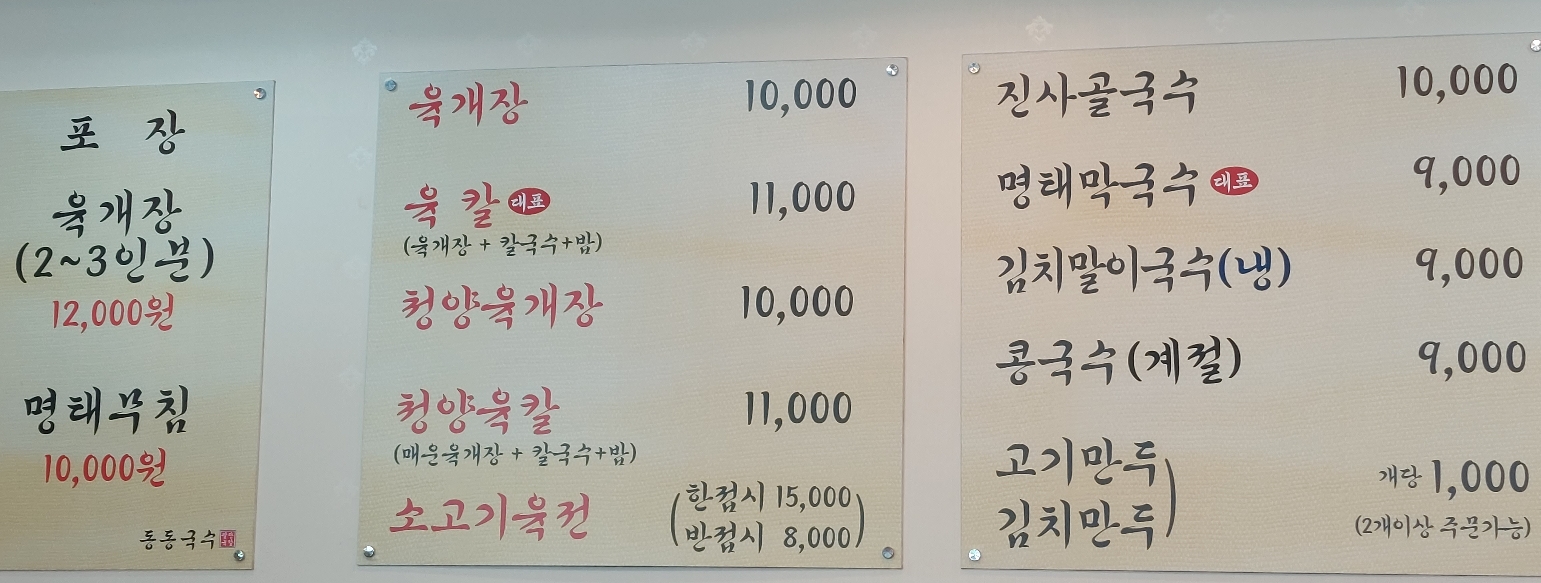 포 장
육개장
(2~3인분)
12,000원
명태무침
10,000원
동동국수
육개장 10,000
육 칼 대표 11,000
(육개장 + 칼국수+밥)
청양육개장 10,000
청양육칼 11,000
(매운육개장 + 칼국수+밥)
소고기육전 (한접시 15,000
반접시 8,000)
진사골국수 10,000
명태막국수 대표 9,000
김치말이국수(냉) 9,000
콩국수(계절) 9,000
고기만두
김치만두) 개당 1,000
(2개이상 주문가능)